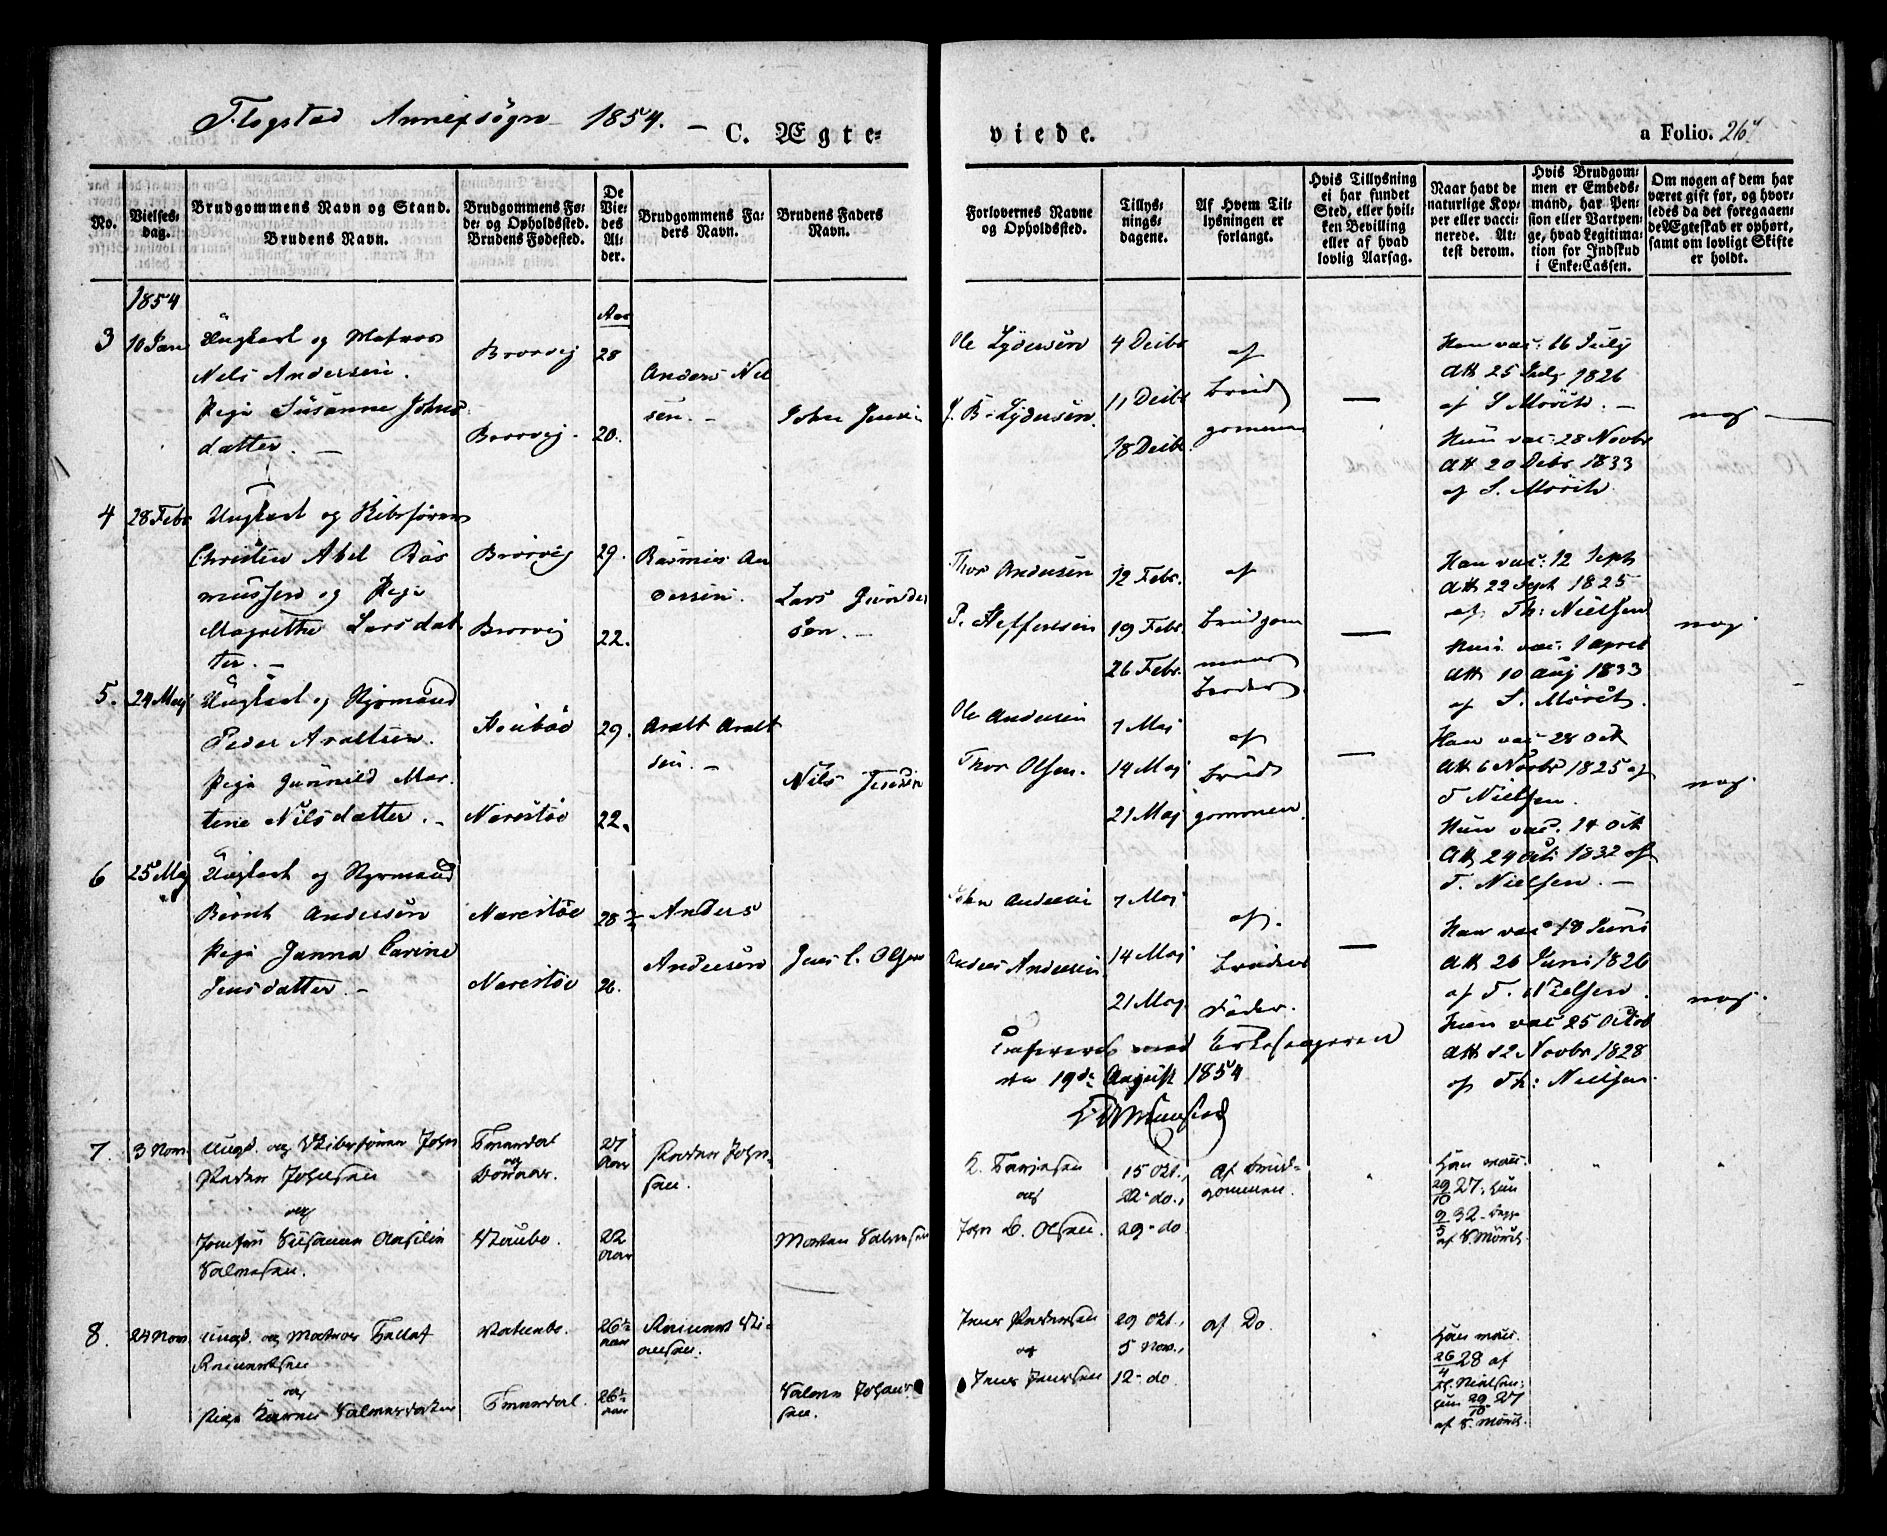 Flogstad Annexsogn 1854. — C. Ægte-
viede.
a Folio. 264
No.
Vielses-
dag.
Brudgommens Navn og Stand.
Brudens Navn.
Brudgommens Fø-
de- og Opholdssted.
Brudens Fødested.
De
Vie-
des
Al-
der.
Brudgommens Fa-
ders Navn.
Brudens Faders
Navn.
Forlovernes Navne
og Opholdssted.
Tillys-
nings-
dagene.
Af Hvem Til-
lysningen er
forlangt.
Hvis Tillysning
ei har fundet
Sted, eller hvil-
ken Bevilling
eller af hvad
lovlig Aarsag.
Naar havt de
naturlige Kop-
per eller vacci-
nerede. At-
test derom.
Hvis Brudgom-
men er Embeds-
mand, har Pen-
sion eller Vartpen-
ge, hvad Legitima-
tion for Indskud
i Enke-Cassen.
Om nogen af dem har
været gift før, og hvor-
ledes da det foregaaen-
de Ægteskab er ophørt,
samt om lovligt Skifte
er holdt.
1854
Aar
3 10 Jan Ungkarl og Matros
Nils Andersen.
Pige Susanne Johns-
datter. —
Broevig 28
Broevig 20.
Anders Niel
sen. —
John Jens
Ole Lydersen 4 Decbr
11 Decbr
18 Decbr
J. B. Lydersen.
af
Brud
gommen
—
Han vac: 16 July
Att 25 July 1826
af S Mörch. —
Hun vac: 28 Novbr
Att 20 Debr 1833
af S. Mörch.
nej —
4 28 Febr Ungkarl og Skibsfører
Christen Abel Ras
mussen og Pige
Magrethe Larsdat
ter. —
Broevig 29.
Broevig 22.
Rasmus An
dersen.
Lars Gunder
sen. —
Thor Andersen
P. Steffensen
12 Febr.
19 Febr.
26 Febr.
af
Brudgom
mens
Broder.
—
Han vac: 12 Sept
Att 22 Sept 1825
af. Th: Nielsen
Hun vac: 1 April
Att 10 Aug 1833
af S. Mörch.
nej
5. 24 Maj Ungkarl og Styrmand
Peder Araltsen.
Pige Gunnild Mar-
tine Nilsdatter. —
Stoubøe 29.
Narestøe 22.
Aralt Aralt
sen. —
Nils Jensen
Ole Andersen
Thor Olsen.
7 Maj
14 Maj
21 Maj
af
Brud
gommen.
—
Han vac 28 Oct
Att 6 Novbr 1825 af
T Nielsen.
Hun vac. 14 Oct
Att 24 Octb 1832 af
T. Nielsen. —
nej
6 25 Maj Ungkarl og Styrmand
Bernt Andersen
Pige Janna Carine
Jensdatter. —
Narestøe 28
Narestøe 26.
Anders
Andersen
Jens C. Olsen
John Andersen
Anders Andersen
7 Maj
14 Maj
21 Maj
af.
Brudens
Fader.
—
Han vac 18 Juni
Att 26 Juni 1826
af T. Nielsen.
Hun vac 25 Octob
Att 12 Novbr 1828
af Th: Nielsen.
nej.
Confereret med Kirkesangeren
den 19de August 1854
7 3 Nov. Ungk. og Skibsfører John
Peder Johnsen
og
Susanna
Salvesen.
Staubø.
27
Aar
22
Aar
Peder John-
sen.
Morten Salvesen
K. Terjesen
og
John B. Olsen.
15 Okt.,
22- do.,
29- do
af Brud-
gommen.
Han vac.
29/10 27; hun
9/5 32 - begge
af S. Mörch.
8. 24 Nov. Ungk. og Matros Tallef
Reinertsen
og
Pige Karen Salvesdatter
26½
aar
26½
aar
Reinert
Salve Johan-
sen.
Jens Pedersen
og
Jens Jenssen
29 Okt.,
5 Nov.,
12- do
af Do.
Han vac.
26/4 28 af
Th. Nielsen;
hun 29/10 27
af S. Mörch.